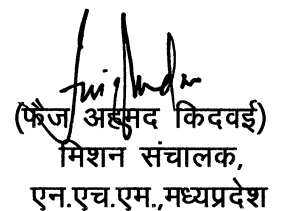 (फैज अहमद किदवई)
मिशन संचालक,
एन.एच.एम.,मध्यप्रदेश